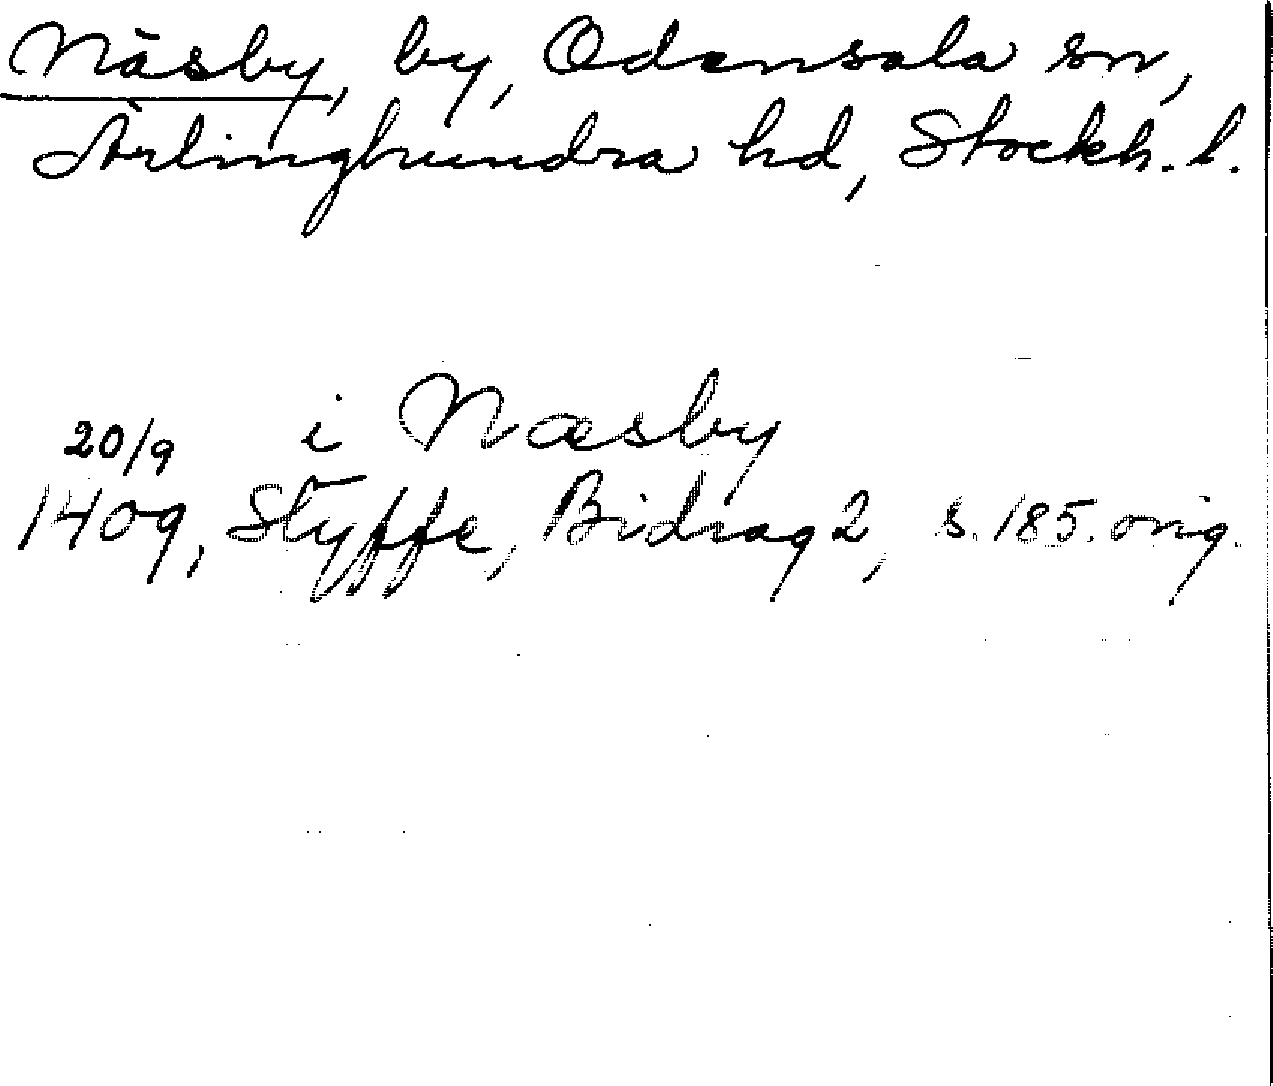 Näsby, by, Odensala sn,
Ärlinghundra hd, Stockh. l.
i Næsby
20/9
1409, Styffe, Bidrag 2, s. 185. orig.